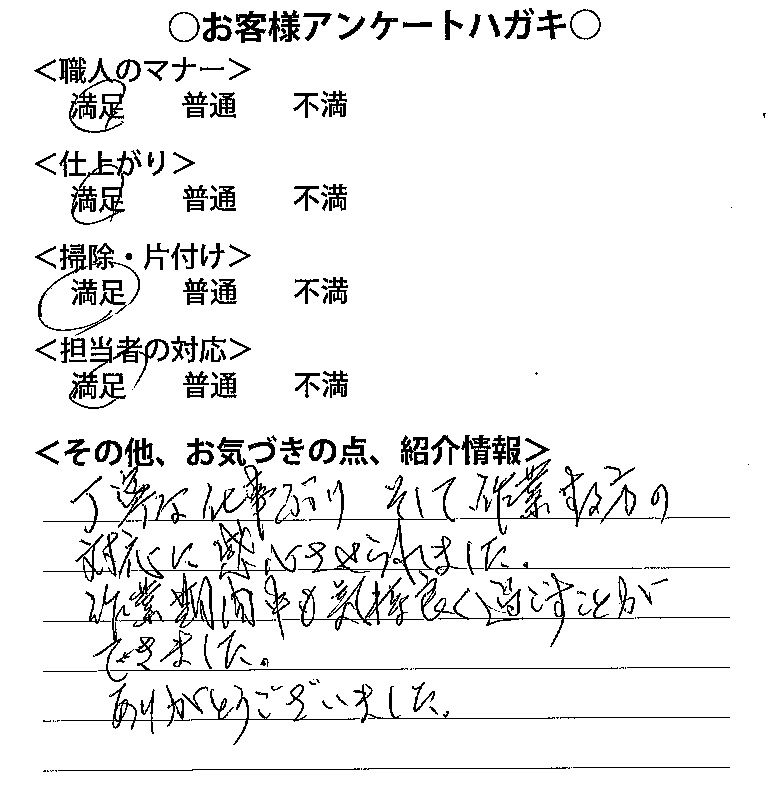 ○お客様アンケートハガキ○
＜職人のマナー＞
満足 普通 不満
＜仕上がり＞
満足 普通 不満
＜掃除・片付け＞
満足 普通 不満
＜担当者の対応＞
満足 普通 不満
＜その他、お気づきの点、紹介情報＞
丁寧な仕事ぶり そして作業する方の
対応に感心させられました。
作業期間中も気持良く過ごすことが
できました。
ありがとうございました。